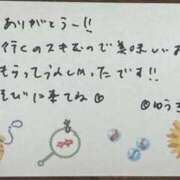 ありがとうー!!
行くのスキなので美味しいお
もらってうれしかったです!!
びに来てね♡
ゆう